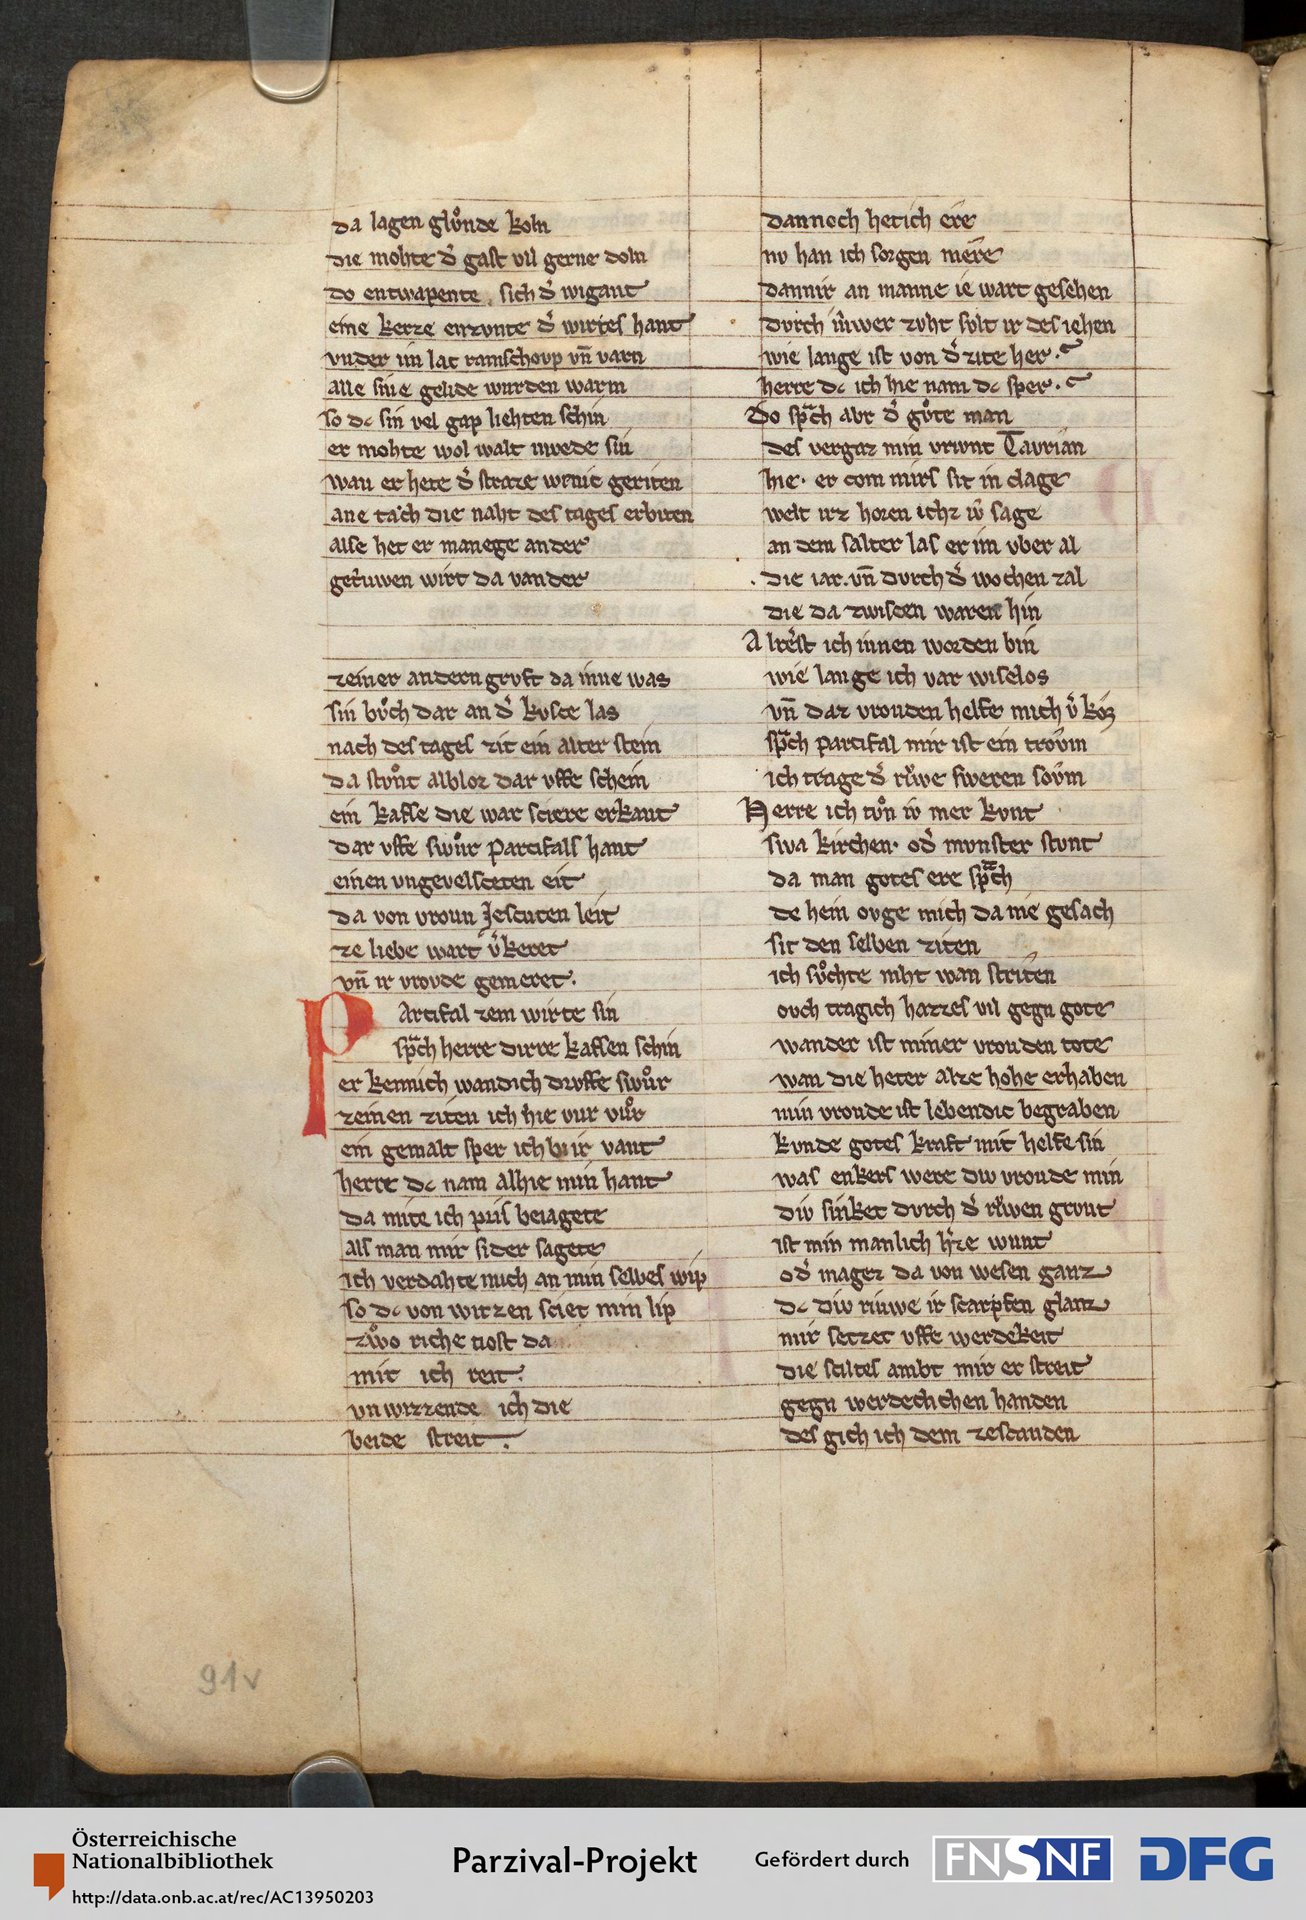 da lagen glvͦnde koln
die mohte d̾ gast vil gerne doln
do entwapente sich d̾ wigant
eine kerze enzvnte d̾ wirtes hant
vnder im lac ramschovp vn̄ varn
alle sine gelide wurden warm
so dc sin vel gap liehten schin
er mohte wol walt mvede sin
wan er hete d̾ straze wenic geriten
ane tach die naht des tages erbiten
alse het er manege ander
getruwen wirt da vander
zeiner andern grvft da inne was
sin bvͦch dar an d̾ kvste las
nach des tages zit ein alter stein
da stvͦnt albloz dar vffe schein
ein kaffe die war sciere erkant
dar vffe swuͦr Partifals hant
einen vngevelscteten eit
da von vroun Jescuten leit
ze liebe wart v̾keret
vn̄ ir vrovde gemeret.
PArtifal zem wirte sin
sprͣch herre dirre kaffen schin
er kennich wandich druffe swuͦr
zeinen ziten ich hie vur vuͦr
ein gemalt sper ich bi ir vant
herre dc nam alhie min hant
da mite ich pris beiagete
als man mir sider sagete
ich verdahte mich an min selbes wip
so dc von witzen sciet min lip
zwo riche tiost da
mit ich reit.
vnwizzende ich die
beide streit.
dannoch hetich ere
nv han ich sorgen mere
dannir an manne ie wart gesehen
dvrch iv̾wer zvht svlt ir des iehen
wie lange ist von d̾ zite her.
herre dc ich hie nam dc sper.
Do sprͣch abr d̾ gvͦte man
des vergaz min vrivnt Tavrian
hie. er com mirs sit in clage
welt irz horen ichz iw̾ sage
an dem salter las er im vber al
die iar. vn̄ dvrch d̾ wochen zal
die da zwiscen waren hin
Alrerst ich innen worden bin
wie lange ich var wiselos
vn̄ daz vrouden helfe mich v̾koz
sprͣch Partifal mir ist ein trovm
ich trage d̾ rvͤwe sweren sovm
Herre ich tvͦn iv mer kvnt
swa kirchen. od̾ mvnster stvnt
da man gotes ere sprͣch
dehein ovge mich da nie gesach
sit den selben ziten
ich svͦchte niht wan striten
ovch tragich hazzes vil gegn gote
wander ist miner vrouden tote
wan die heter alze hohe erhaben
min vroude ist lebendic begraben
kvnde gotes kraft mit helfe sin
was enkers were div vroude min
div sinket dvrch d̾ rvͤwen grvnt
ist min manlich h̾ze wunt
od̾ magez da von wesen ganz
dc div riuwe ir scarpfen glanz
mir setzet vffe werdekeit
die sciltes ambt mir er streit
gegn werdechichen handen
des gich ich dem zescanden
91v
Österreichische
Nationalbibliothek
http://data.onb.ac.at/rec/AC13950203
Parzival-Projekt
Gefördert durch
FNSNF
DFG